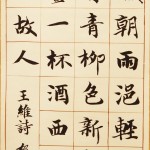 朝雨浥輕
青柳色新
一杯酒西
故人
王維詩